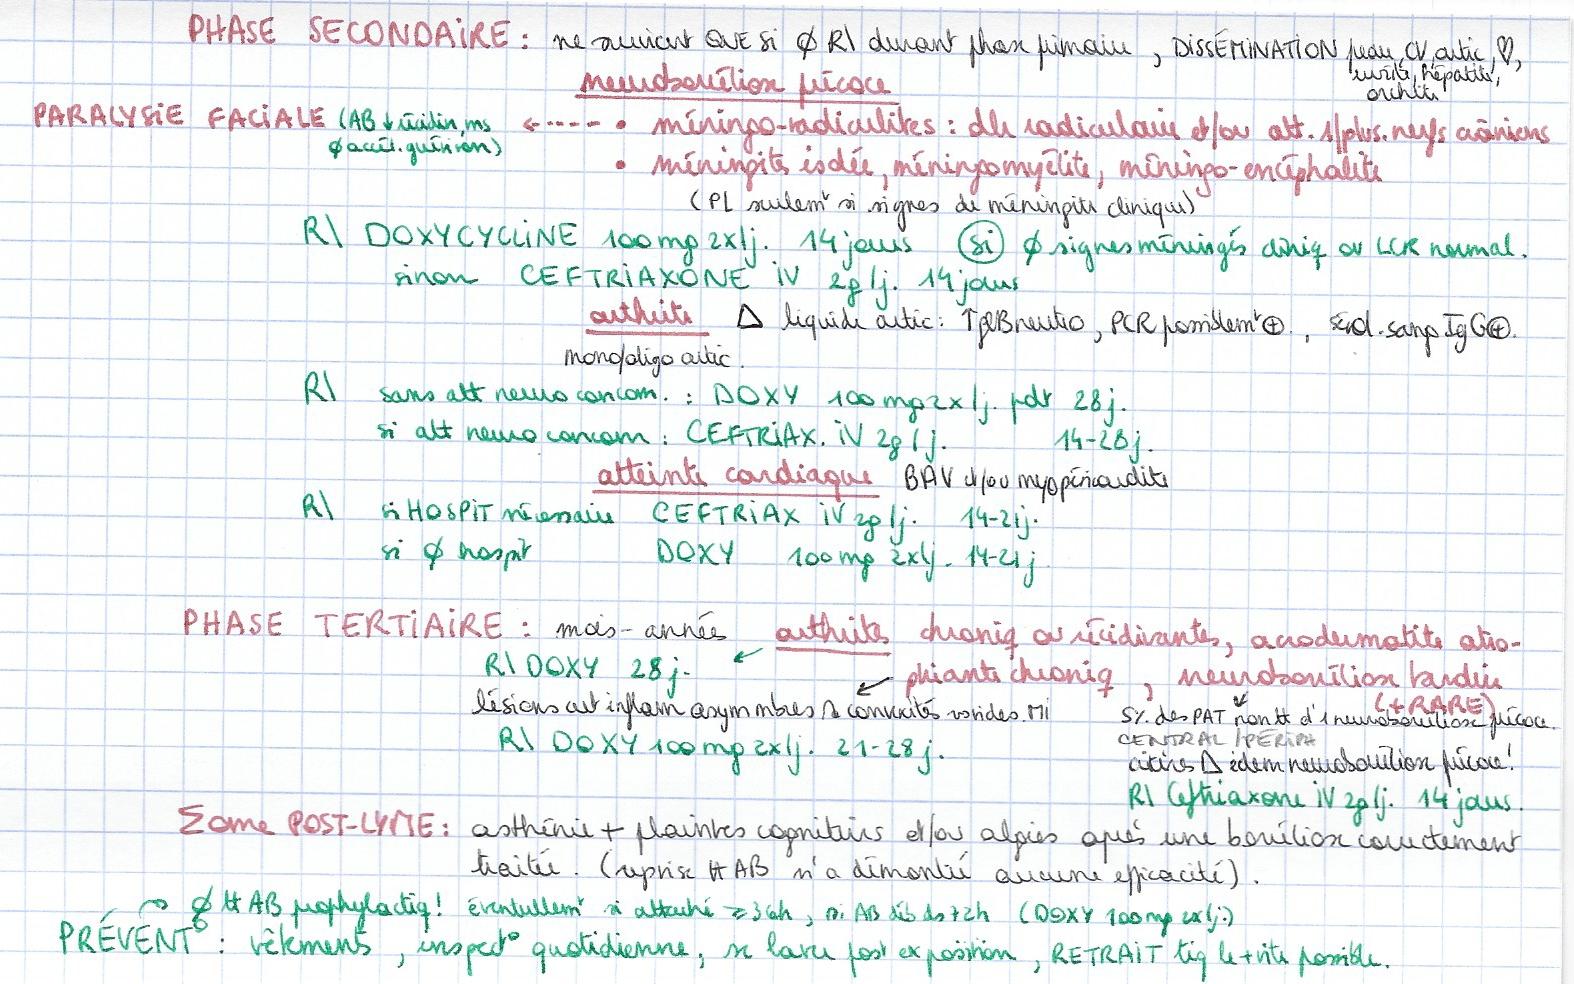 PHASE SECONDAIRE : ne survient QUE si ∅ R\ durant phase primaire , DISSÉMINATION peau, CV, artic, ♡,
uvéite, hépatite,
orchite
neuroborréliose précoce
PARALYSIE FACIALE (AB ↓ récidiv, ms ←---- • méningo-radiculites : dlr radiculaire et/ou att. 1/plus. nerfs crâniens
∅ accél. guérison)
• méningite isolée, méningomyélite, méningo-encéphalite
(PL seulemt si signes de méningite clinique)
R\ DOXYCYCLINE 100mg 2x/j. 14 jours (si) ∅ signes méningés cliniq ou LCR normal.
sinon CEFTRIAXONE iV 2g/j. 14 jours
arthrite Δ liquide artic : ↑GB neutro , PCR possiblemt ⊕ , sérol. sang IgG ⊕.
mono/oligo artic.
R\ sans att neuro concom. : DOXY 100mg 2x/j. pdt 28j.
si att neuro concom : CEFTRIAX. iV 2g/j. 14-28j.
atteinte cardiaque BAV et/ou myopéricardite
R\ si HOSPIT nécessaire CEFTRIAX iV 2g/j. 14-21j.
si ∅ hospit DOXY 100mg 2x/j. 14-21j.
PHASE TERTIAIRE : mois-année arthrites chroniq ou récidivantes, acrodermatite atro-
R\ DOXY 28j. phiante chroniq , neuroborréliose tardive
(+RARE)
lésions cut inflam asymmbres convexités MI
5% des PAT non tt d'1 neuroborréliose précoce.
CENTRAL / PÉRIPH
R\ DOXY 100mg 2x/j. 21-28 j.
critères Δ idem neuroborréliose précoce!
R\ Ceftriaxone iV 2g/j. 14 jours.
Σome POST-LYME : asthénie + plaintes cognitives et/ou algies après une borréliose correctement
traitée. (reprise tt AB n'a démontré aucune efficacité).
∅ tt AB prophylactiq! éventuellemt si attaché ≥ 36h , si AB déb ds 72h (DOXY 100mg 2x/j.)
PRÉVENT° : vêtements , inspect° quotidienne, se laver post exposition , RETRAIT tiq le + vite possible.